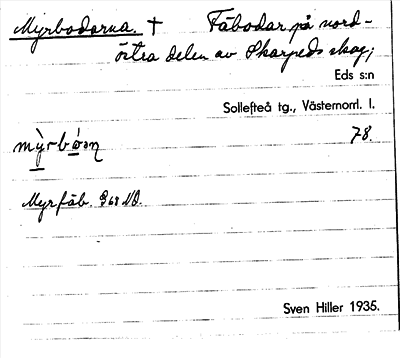 Myrbodarna. † Fäbodar på nord-
östra delen av Skarpeds skog;
Eds s:n
Sollefteå tg., Västernorrl. l.
78.
Myrfäb. G68 NO.
Sven Hiller 1935.